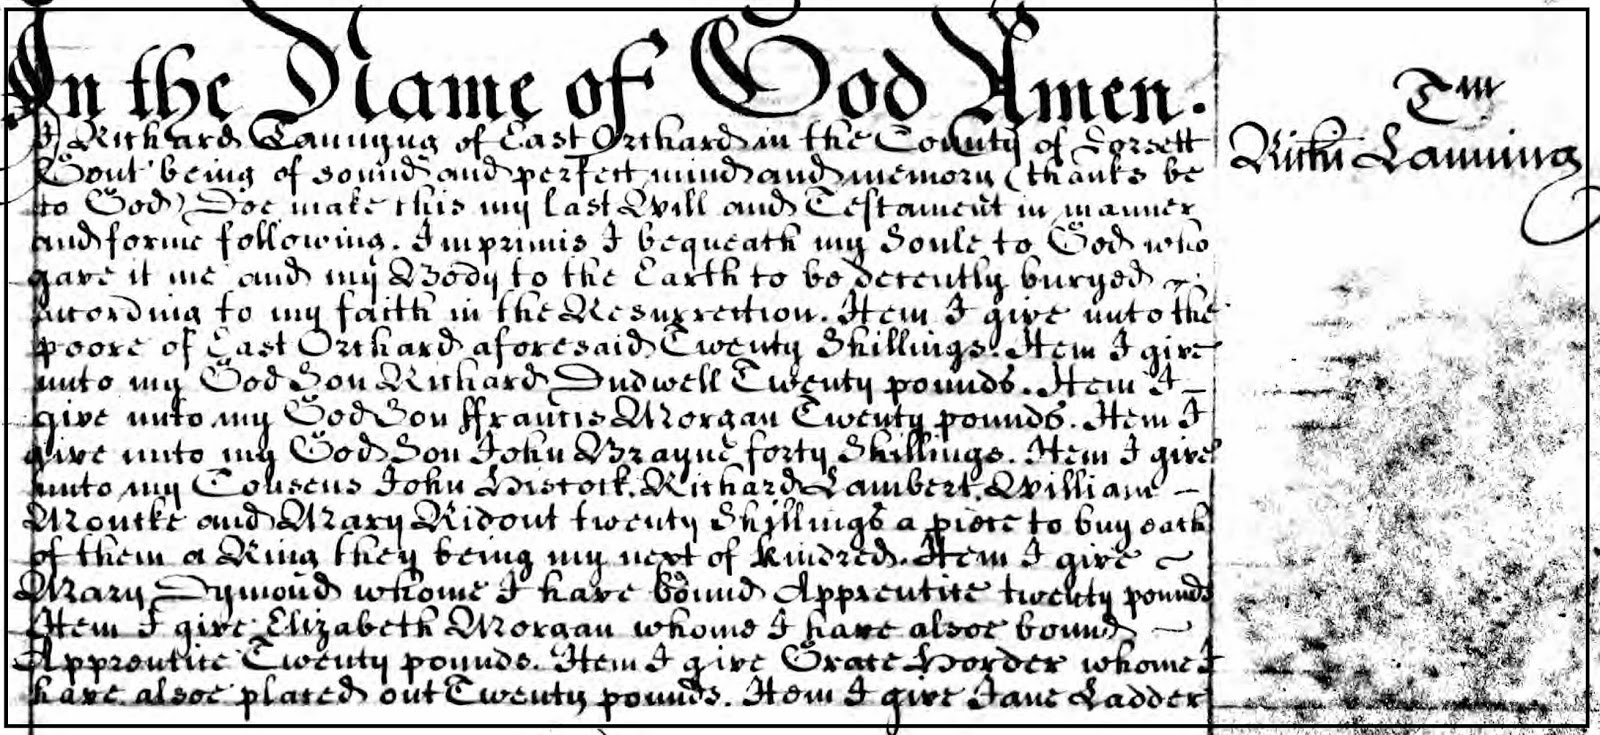 In the Name of God Amen.
Tm
I Richard Lanning of East Orchard in the County of Dorsett
Richi Lanning
Gent being of sound and perfect mind and memory (thanks be
to God) Doe make this my last Will and Testament in manner
and forme following. Imprimis I bequeath my Soule to God who
gave it me and my Body to the Earth to be decently buryed
according to my faith in the Resurrection. Item I give unto the
poore of East Orchard aforesaid Twenty Shillings. Item I give
unto my God Son Richard Dudwell Twenty pounds. Item I
give unto my God Son ffrancis Morgan Twenty pounds. Item I
give unto my God Son John Brayne forty Shillings. Item I give
unto my Cousens John Histock, Richard Lambert, William
Moucke and Mary Ridout twenty Shillings a piece to buy each
of them a Ring they being my next of kindred. Item I give
Mary Dymond whome I have bound Apprentice twenty pounds
Item I give Elizabeth Morgan whome I have alsoe bound
Apprentice Twenty pounds. Item I give Grace Horder whome I
have alsoe placed out Twenty pounds. Item I give Jane Ladder